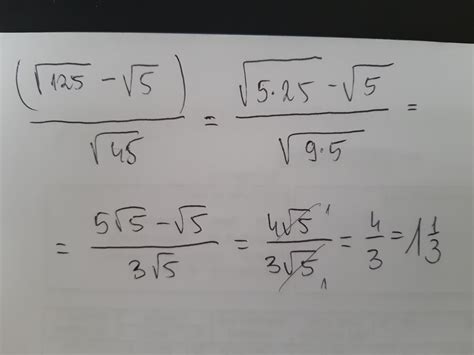 (√125 - √5) / √45 = (√5·25 - √5) / √9·5 =
= (5√5 - √5) / 3√5 = 4√5 1 / 3√5 1 = 4/3 = 1 1/3